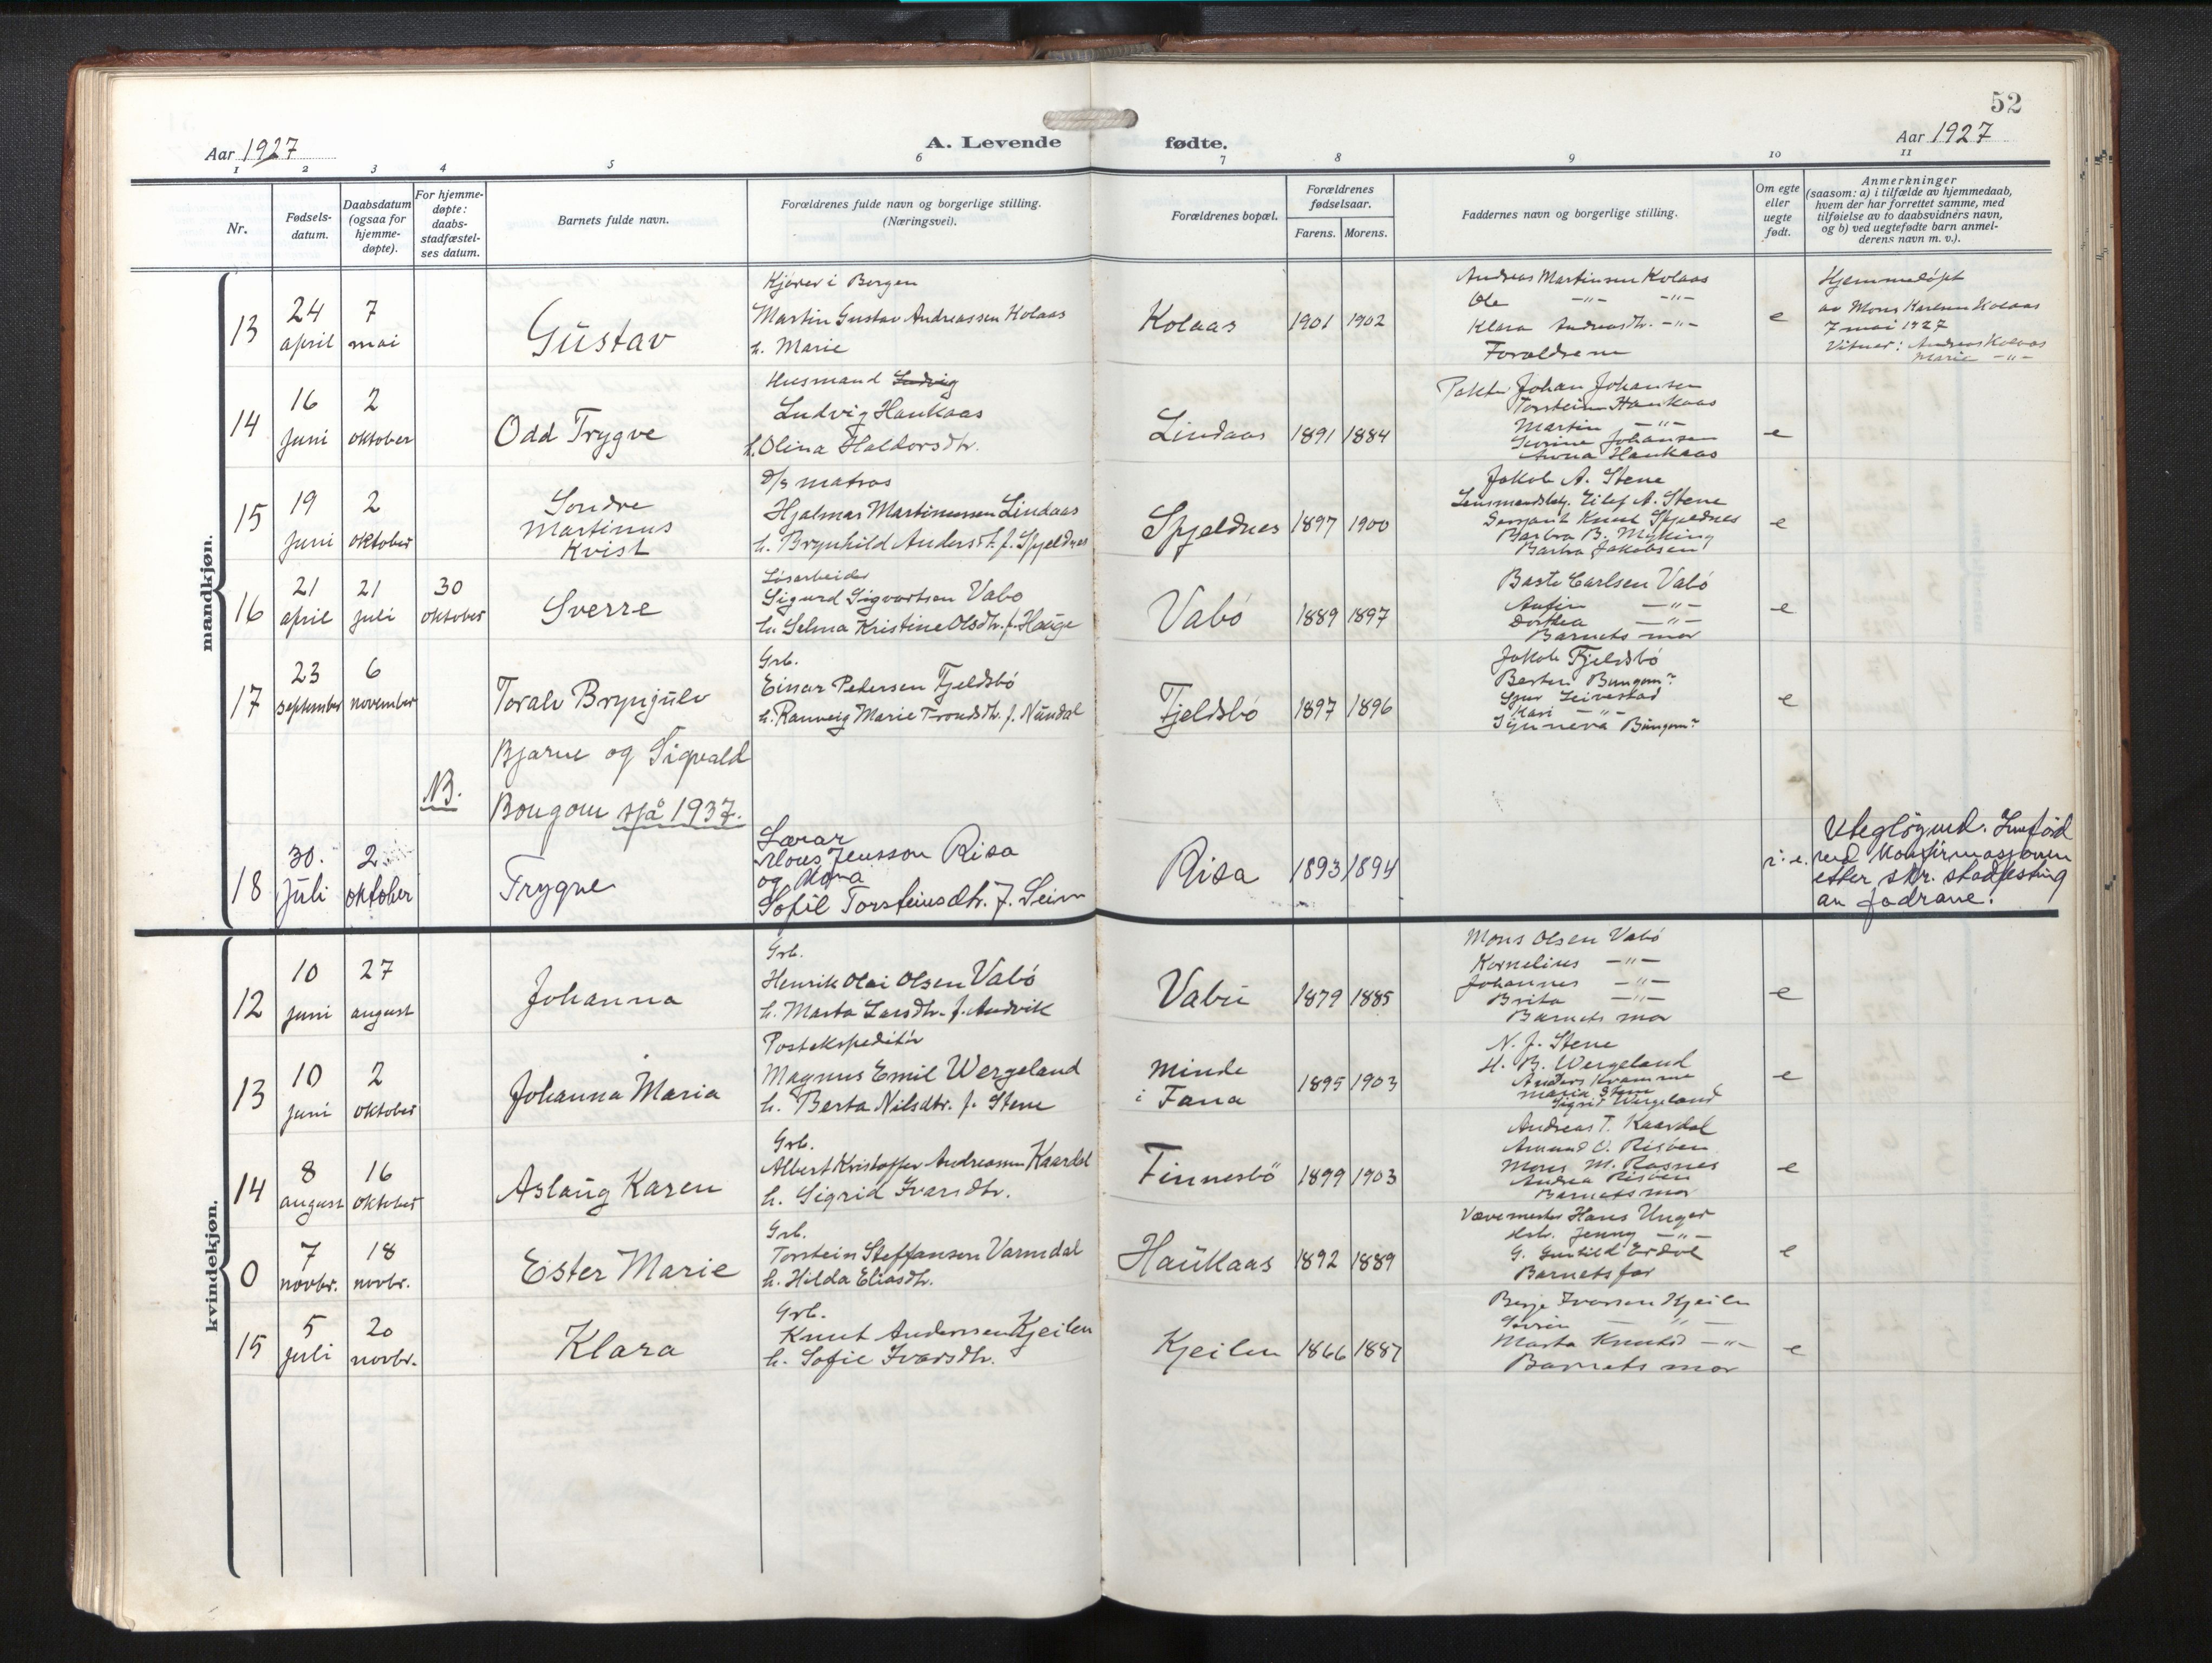 52
Aar 1927
A. Levende
fødte.
Aar 1927
1 2 3 4 5 6 7 8 9 10 11
Nr.
Fødsels-
datum.
Daabsdatum
(ogsaa for
hjemme-
døpte).
For hjemme-
døpte:
daabs-
stadfæstel-
ses datum.
Barnets fulde navn.
Forældrenes fulde navn og borgerlige stilling.
(Næringsvei).
Forældrenes bopæl.
Forældrenes
fødselsaar.
Farens. Morens.
Faddernes navn og borgerlige stilling.
Om egte
eller
uegte
født.
Anmerkninger
(saasom: a) i tilfælde av hjemmedaab,
hvem der har forrettet samme, med
tilføielse av to daabsvidners navn,
og b) ved uegtefødte barn anmel-
derens navn m. v.).
mandkjøn.
13
24
april
7
mai
Gustav
Kjører i Bergen
Martin Gustav Andreassen Kolaas
h. Marie
Kolaas
1901 1902
Andreas Martinsen Kolaas
Ole -"- -"-
Klara Andreasdtr. -"-
Forældrene
e
Hjemmedøpt
av Mons Karlsen Kolaas
7 mai 1927
Vitner: Andreas Kolaas
Marie -"-
14
16
juni
2
oktober
Odd Trygve
Husmand Ludvig
Ludvig Haukaas
h. Olina Haldorsdtr.
Lindaas
1891 1884
Johan Johansen
Torstein Haukaas
Martin -"-
Johansen
Anna Haukaas
e
15
19
juni
2
oktober
Sondre
Martinus
Kvist
D/s matros
Hjalmar Martinussen Lindaas
h. Brynhild Andersdt. f. Spjeldnes
Spjeldnes
1897 1900
Jakob A. Stene
Lensmandsbetj. Eilef A. Stene
Sersjant Knut Spjeldnes
Barbra B. Myking
Barbra Jakobsen
e
16
21
april
21
juli
30
oktober
Sverre
Løsarbeider
Sigurd Sigvartsen Vabø
h. Selma Kristine Olsdtr. f. Hauge
Vabø
1889 1897
Carlsen Vabø
Anfin -"-
Dorthea -"-
Barnets mor
e
17
23
september
6
november
Toralv Bryngulv
Grb.
Einar Pedersen Fjeldsbø
h. Ranveig Marie Trondsdtr. f. Nundal
Fjeldsbø
1897 1896
Jakob Fjeldsbø
Seivestad
Kari -"-
e
NB.
Bjarne og Sigvald
Bongom sjå 1937.
18
30.
juli
2
oktober
Trygve
Lærar
Mons Jensson Risa
og kona
Sofie Torsteinsdtr. f. Seim
Risa
1893 1894
i. e.
Utegløymd. Innførd
ved konfirmasjonen
etter skr. stadfesting
av fadrane.
kvindekjøn.
12
10
juni
27
august
Johanna
Grb.
Henrik Olai Olsen Vabø
h. Marta Larsdtr. f. Andvik
Vabø
1879 1885
Mons Olsen Vabø
Kornelius -"-
Johannes -"-
Brita -"-
Barnets mor
e
13
10
juni
2
oktober
Johanna Maria
Postekspeditør
Magnus Emil Wergeland
h. Berta Nilsdtr. f. Stene
Minde
i Fana
1895 1903
N. J. Stene
H. B. Wergeland
Anders Kvamme
Maria Stene
Sigrid Wergeland
e
14
8
august
16
oktober
Aslaug Karen
Grb.
Albert Kristoffer Andreassen Kaardal
h. Sigrid Ivarsdtr.
Finnesbø
1899 1903
Andreas T. Kaardal
Amund O. Risøen
Mons M. Rosnes
Andrea Risøen
Barnets mor
e
0
7
novbr.
18
novbr.
Ester Marie
Grb.
Torstein Steffansen Varmdal
h. Hilda Eliasdtr.
Haukaas
1892 1889
Vævemester Hans Unger
Jenny -"-
G. Gunhild Erdal
Barnets far
e
15
5
juli
20
novbr.
Klara
Grb.
Knut Anderssen Kjeilen
h. Sofie Ivarsdtr.
Kjeilen
1866 1887
Ivarsen Kjeilen
Marta Knutsd -"-
Barnets mor
e